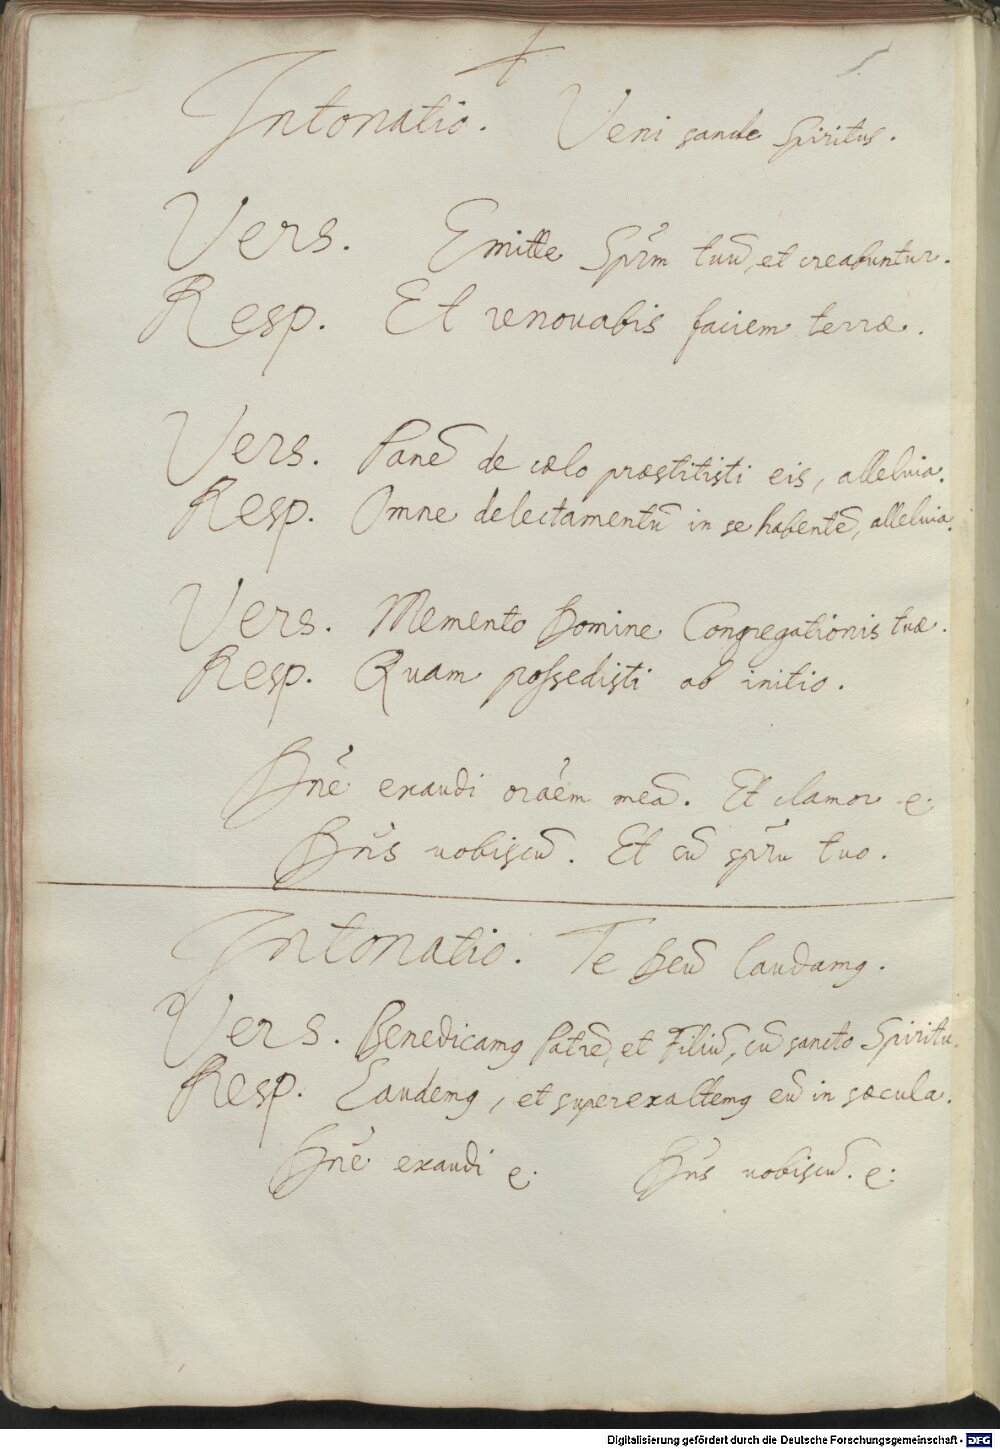 Intonatio. Veni sancte Spiritus.
Vers. Emitte Spũm tuũ, et creabuntur.
Resp. Et renovabis faciem terræ.
Vers. Panẽ de cœlo præstitisti eis, alleluia.
Resp. Omne delectamentũ in se habentẽ, alleluia.
Vers. Memento Domine Congregationis tuæ.
Resp. Quam possedisti ab initio.
Dñe exaudi oraẽm meã. Et clamor e:
Dñs vobiscũ. Et cũ spũ tuo.
Intonatio. Te Deũ laudamꝰ.
Vers. Benedicamꝰ Patrẽ, et Filiũ, cũ sancto Spiritu.
Resp. Laudemꝰ, et superexaltemꝰ eũ in sæcula.
Dñe exaudi e: Dñs vobiscũ. e:
Digitalisierung gefördert durch die Deutsche Forschungsgemeinschaft - DFG